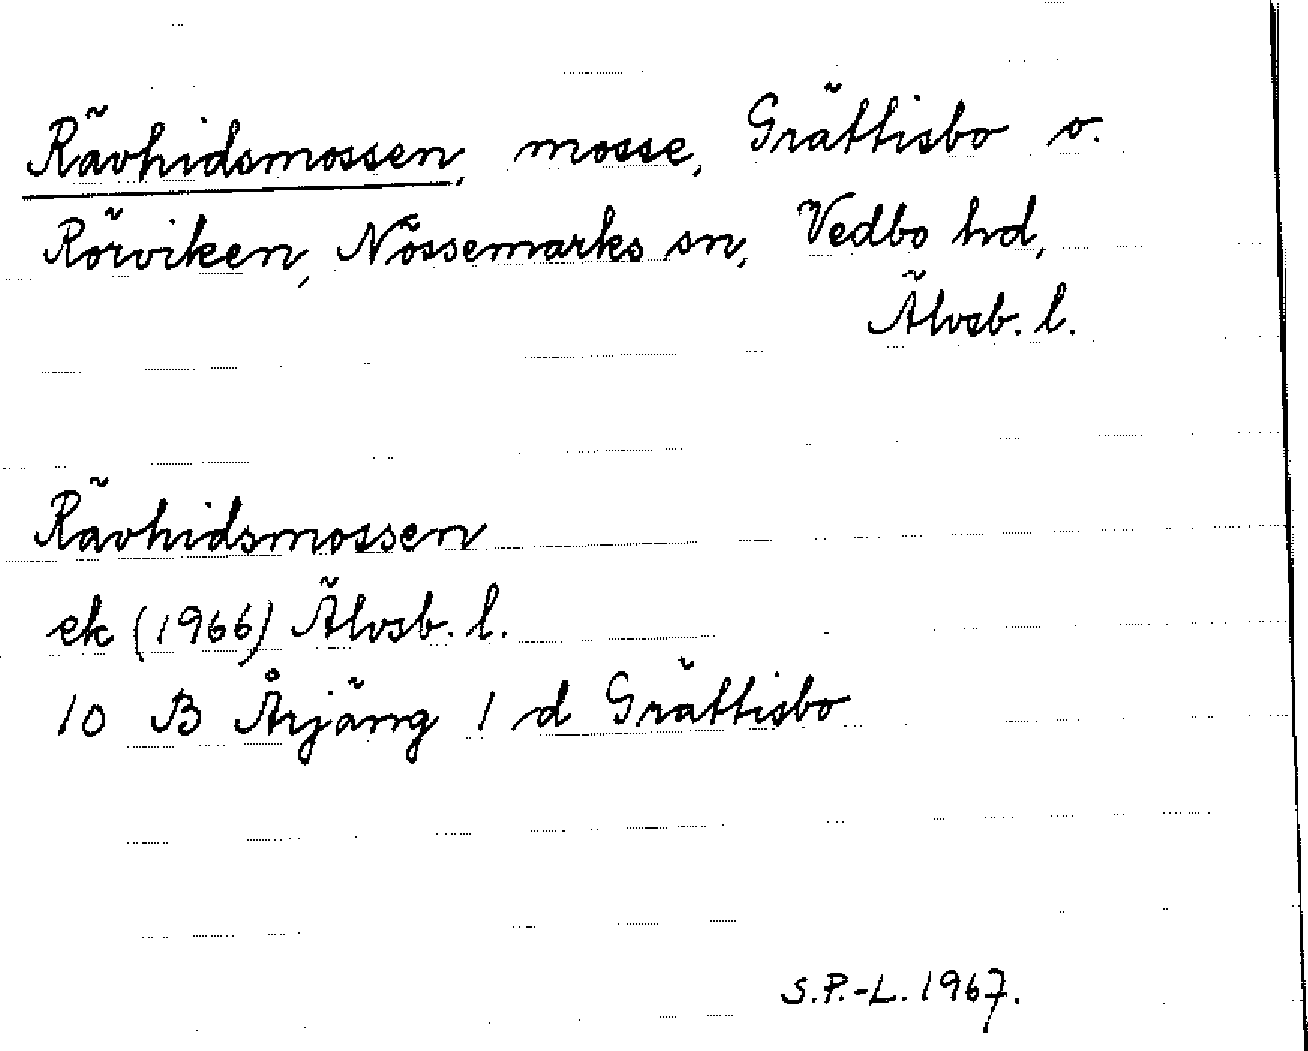 Rävhidsmossen, mosse, Grättisbo o.
Rörviken, Nössemarks sn, Vedbo hd,
Älvsb. l.
Rävhidsmossen
ek (1966) Älvsb. l.
10 B Årjäng 1 d Grättisbo
S.P.-L. 1967.